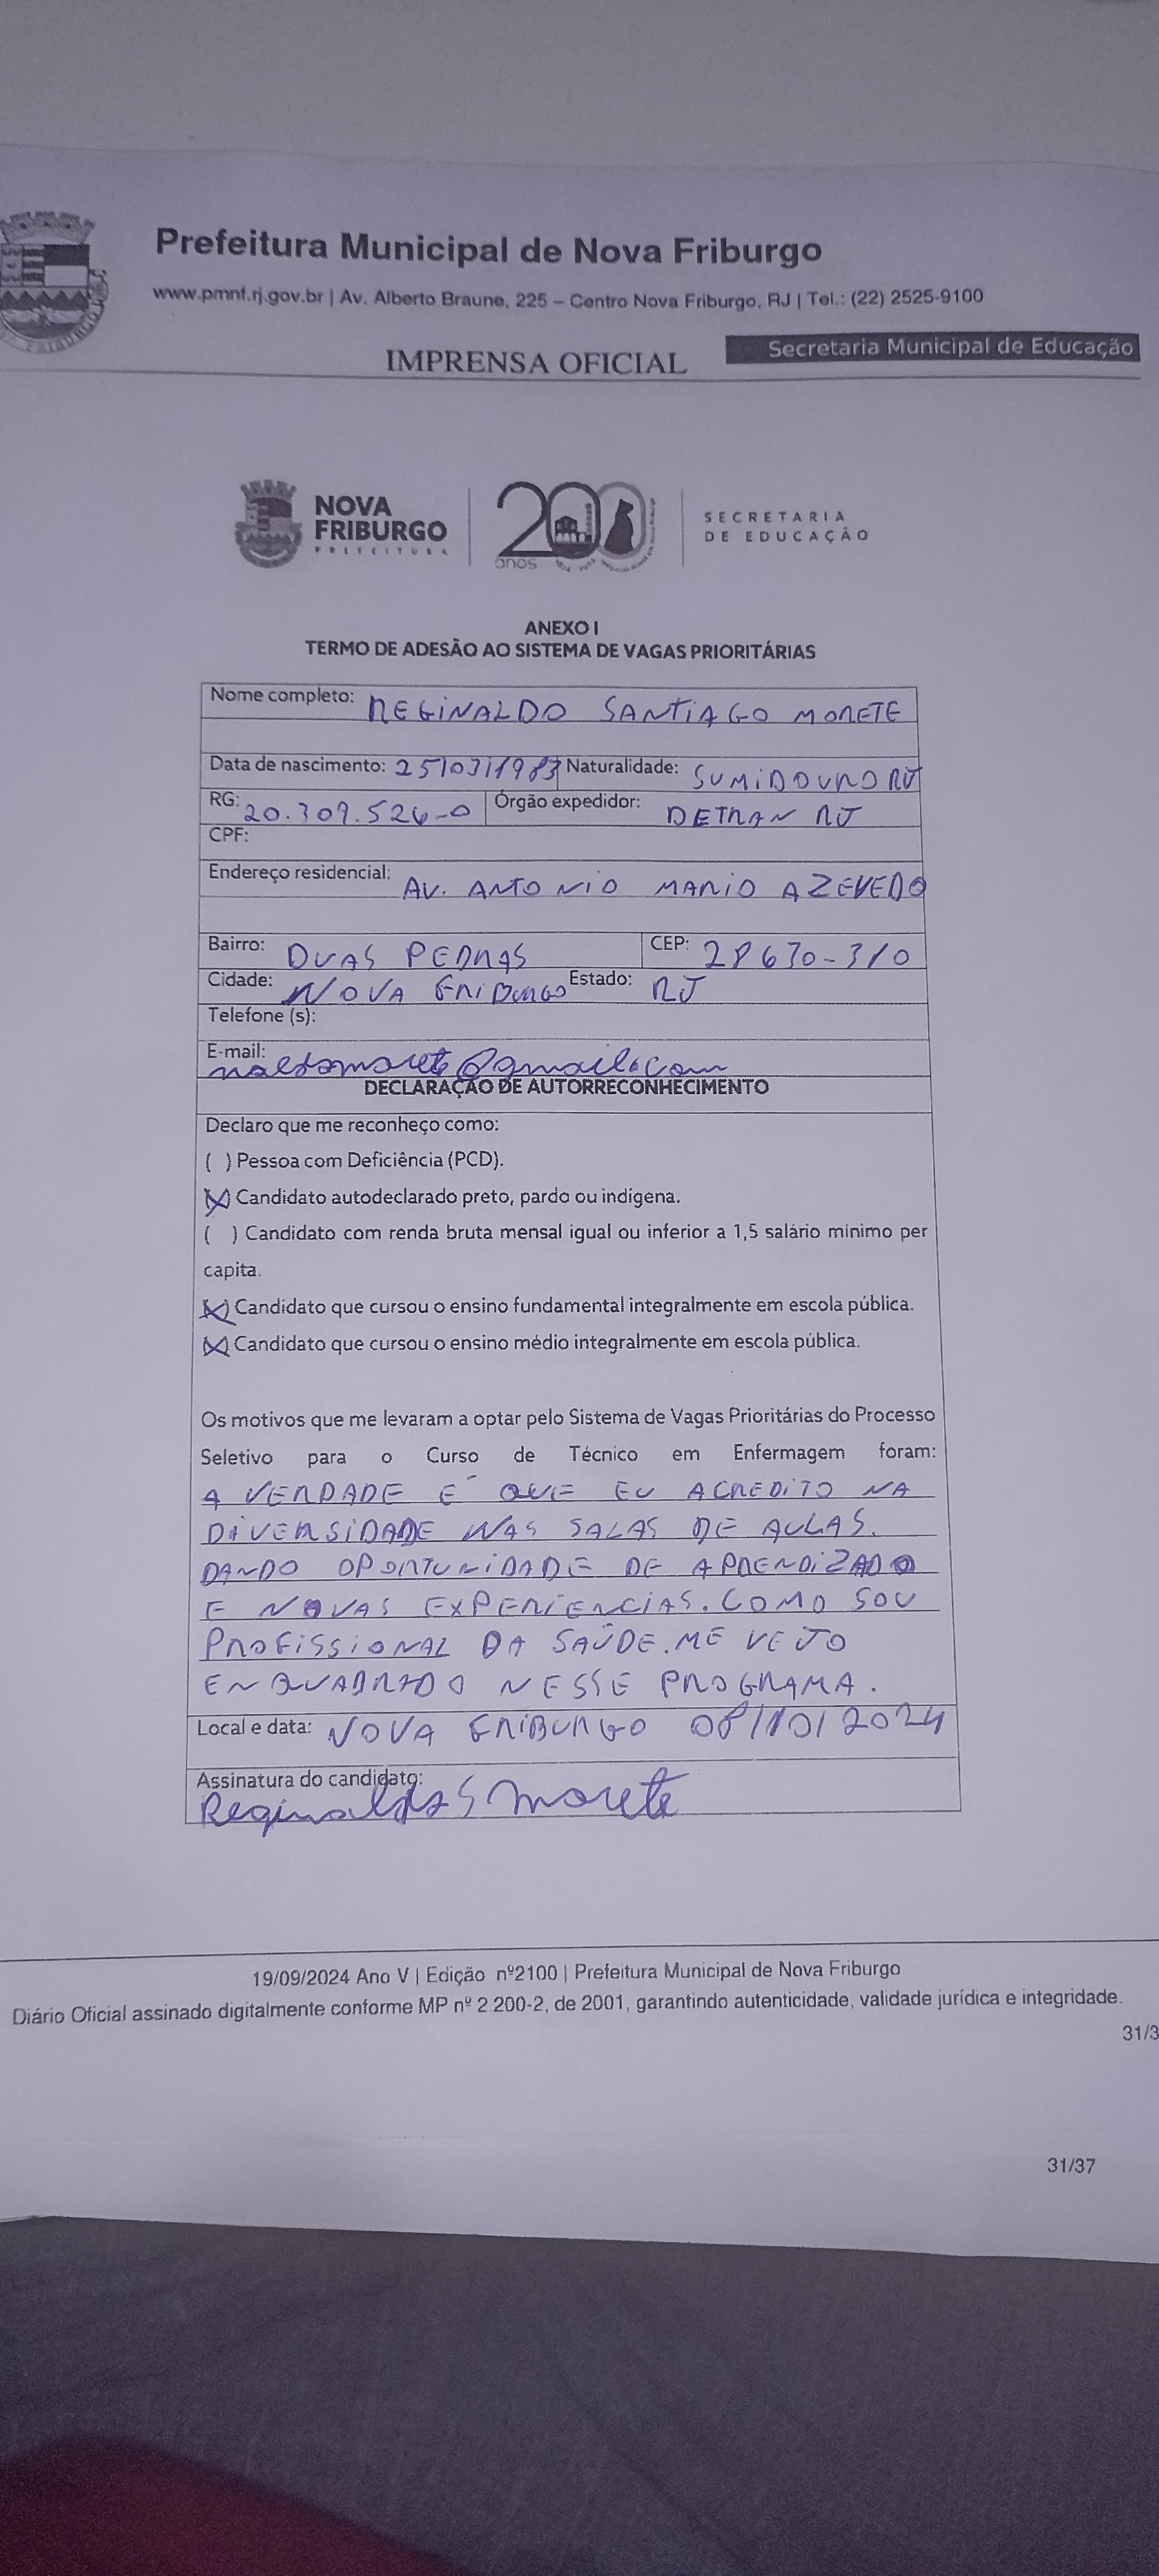 Prefeitura Municipal de Nova Friburgo
www.pmnf.rj.gov.br | Av. Alberto Braune, 225 – Centro Nova Friburgo, RJ | Tel.: (22) 2525-9100
IMPRENSA OFICIAL
Secretaria Municipal de Educação
NOVA FRIBURGO
PREFEITURA
200
anos
SECRETARIA
DE EDUCAÇÃO
ANEXO I
TERMO DE ADESÃO AO SISTEMA DE VAGAS PRIORITÁRIAS
Nome completo: REGINALDO SANTIAGO MORETE
Data de nascimento: 25/03/1983 Naturalidade: SUMIDOURO RJ
RG: 20.309.526-0 Órgão expedidor: DETRAN RJ
CPF:
Endereço residencial: AV. ANTONIO MARIO AZEVEDO
Bairro: DUAS PEDRAS CEP: 28630-310
Cidade: NOVA FRIBURGO Estado: RJ
Telefone (s):
E-mail: @gmail.com
DECLARAÇÃO DE AUTORRECONHECIMENTO
Declaro que me reconheço como:
( ) Pessoa com Deficiência (PCD).
(X) Candidato autodeclarado preto, pardo ou indígena.
( ) Candidato com renda bruta mensal igual ou inferior a 1,5 salário mínimo per
capita.
(X) Candidato que cursou o ensino fundamental integralmente em escola pública.
(X) Candidato que cursou o ensino médio integralmente em escola pública.
Os motivos que me levaram a optar pelo Sistema de Vagas Prioritárias do Processo
Seletivo para o Curso de Técnico em Enfermagem foram:
A VERDADE É QUE EU ACREDITO NA
DIVERSIDADE NAS SALAS DE AULAS.
DANDO OPORTUNIDADE DE APRENDIZADO
E NOVAS EXPERIENCIAS. COMO SOU
PROFISSIONAL DA SAÚDE. ME VEJO
ENQUADRADO NESSE PROGRAMA.
Local e data: NOVA FRIBURGO 08/10/2024
Assinatura do candidato:
Reginaldo S Morete
19/09/2024 Ano V | Edição nº2100 | Prefeitura Municipal de Nova Friburgo
Diário Oficial assinado digitalmente conforme MP nº 2.200-2, de 2001, garantindo autenticidade, validade jurídica e integridade.
31/3
31/37